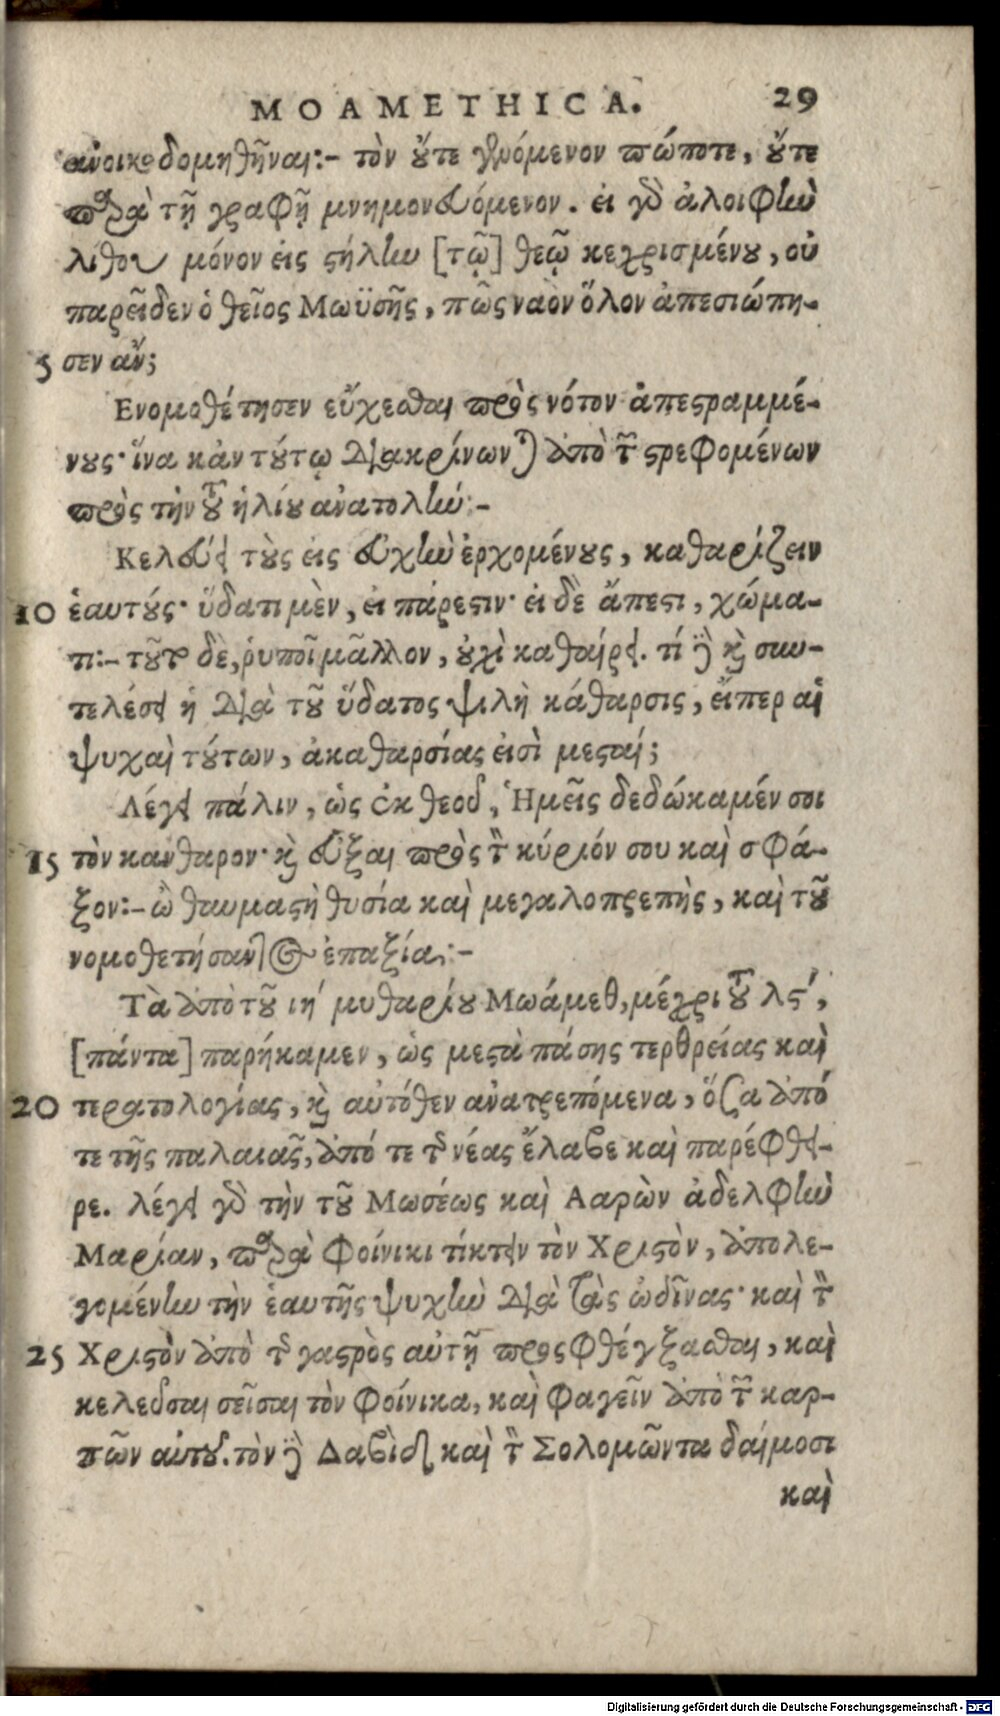 MOAMETHICA. 29
ἀνοικοδομηθῆναι:- τὸν οὔτε γενόμενον πώποτε, οὔτε
παρὰ τῇ γραφῇ μνημονευόμενον. εἰ γὰρ ἀλοιφὴν
λίθου μόνον εἰς στήλην [τῷ] θεῷ κεχρισμένου, οὐ
παρεῖδεν ὁ θεῖος Μωϋσῆς, πῶς ναὸν ὅλον ἀπεσιώπη-
5 σεν ἄν;
Ενομοθέτησεν εὔχεσθαι πρὸς νότον ἀπεστραμμέ-
νους· ἵνα κἀν τούτῳ διακρίνωνται ἀπὸ τῶν στρεφομένων
πρὸς τὴν τοῦ ἡλίου ἀνατολήν:-
Κελεύει τοὺς εἰς εὐχὴν ἐρχομένους, καθαρίζειν
10 ἑαυτούς· ὕδατι μὲν, εἰ πάρεστιν· εἰ δὲ ἄπεστι, χώμα-
τι:- τοῦτο δὲ, ῥυποῖ μᾶλλον, οὐχὶ καθαίρει. τί δὲ καὶ συν-
τελέσει ἡ διὰ τοῦ ὕδατος ψιλὴ κάθαρσις, εἴπερ αἱ
ψυχαὶ τούτων, ἀκαθαρσίας εἰσὶ μεσταί;
Λέγει πάλιν, ὡς ἐκ θεοῦ, Ἡμεῖς δεδώκαμέν σοι
15 τὸν κανθαρον· καὶ εὖξαι πρὸς τὸν κύριόν σου καὶ σφά-
ξον:- ὢ θαυμαστὴ θυσία καὶ μεγαλοπρεπὴς, καὶ τοῦ
νομοθετήσαντος ἐπαξία:-
Τὰ ἀπὸ τοῦ ιη′ μυθαρίου Μωάμεθ, μέχρι τοῦ λς′,
[πάντα] παρήκαμεν, ὡς μεστὰ πάσης τερθρείας καὶ
20 τερατολογίας, καὶ αὐτόθεν ἀνατρεπόμενα, ὅσα ἀπό
τε τῆς παλαιᾶς, ἀπό τε τῆς νέας ἔλαβε καὶ παρέφθει-
ρε. λέγει γὰρ τὴν τοῦ Μωσέως καὶ Ααρὼν ἀδελφὴν
Μαρίαν, παρὰ Φοίνικι τίκτειν τὸν Χριστὸν, ἀπολε-
γομένην τὴν ἑαυτῆς ψυχὴν διὰ τὰς ὠδῖνας· καὶ τὸν
25 Χριστὸν ἀπὸ τῆς γαστρὸς αὐτῇ προσφθέγξασθαι, καὶ
κελεῦσαι σεῖσαι τὸν Φοίνικα, καὶ φαγεῖν ἀπὸ τῶν καρ-
πῶν αὐτοῦ. τὸν δὲ Δαβὶδ καὶ τὸν Σολομῶντα δαίμοσι
καὶ
Digitalisierung gefördert durch die Deutsche Forschungsgemeinschaft - DFG